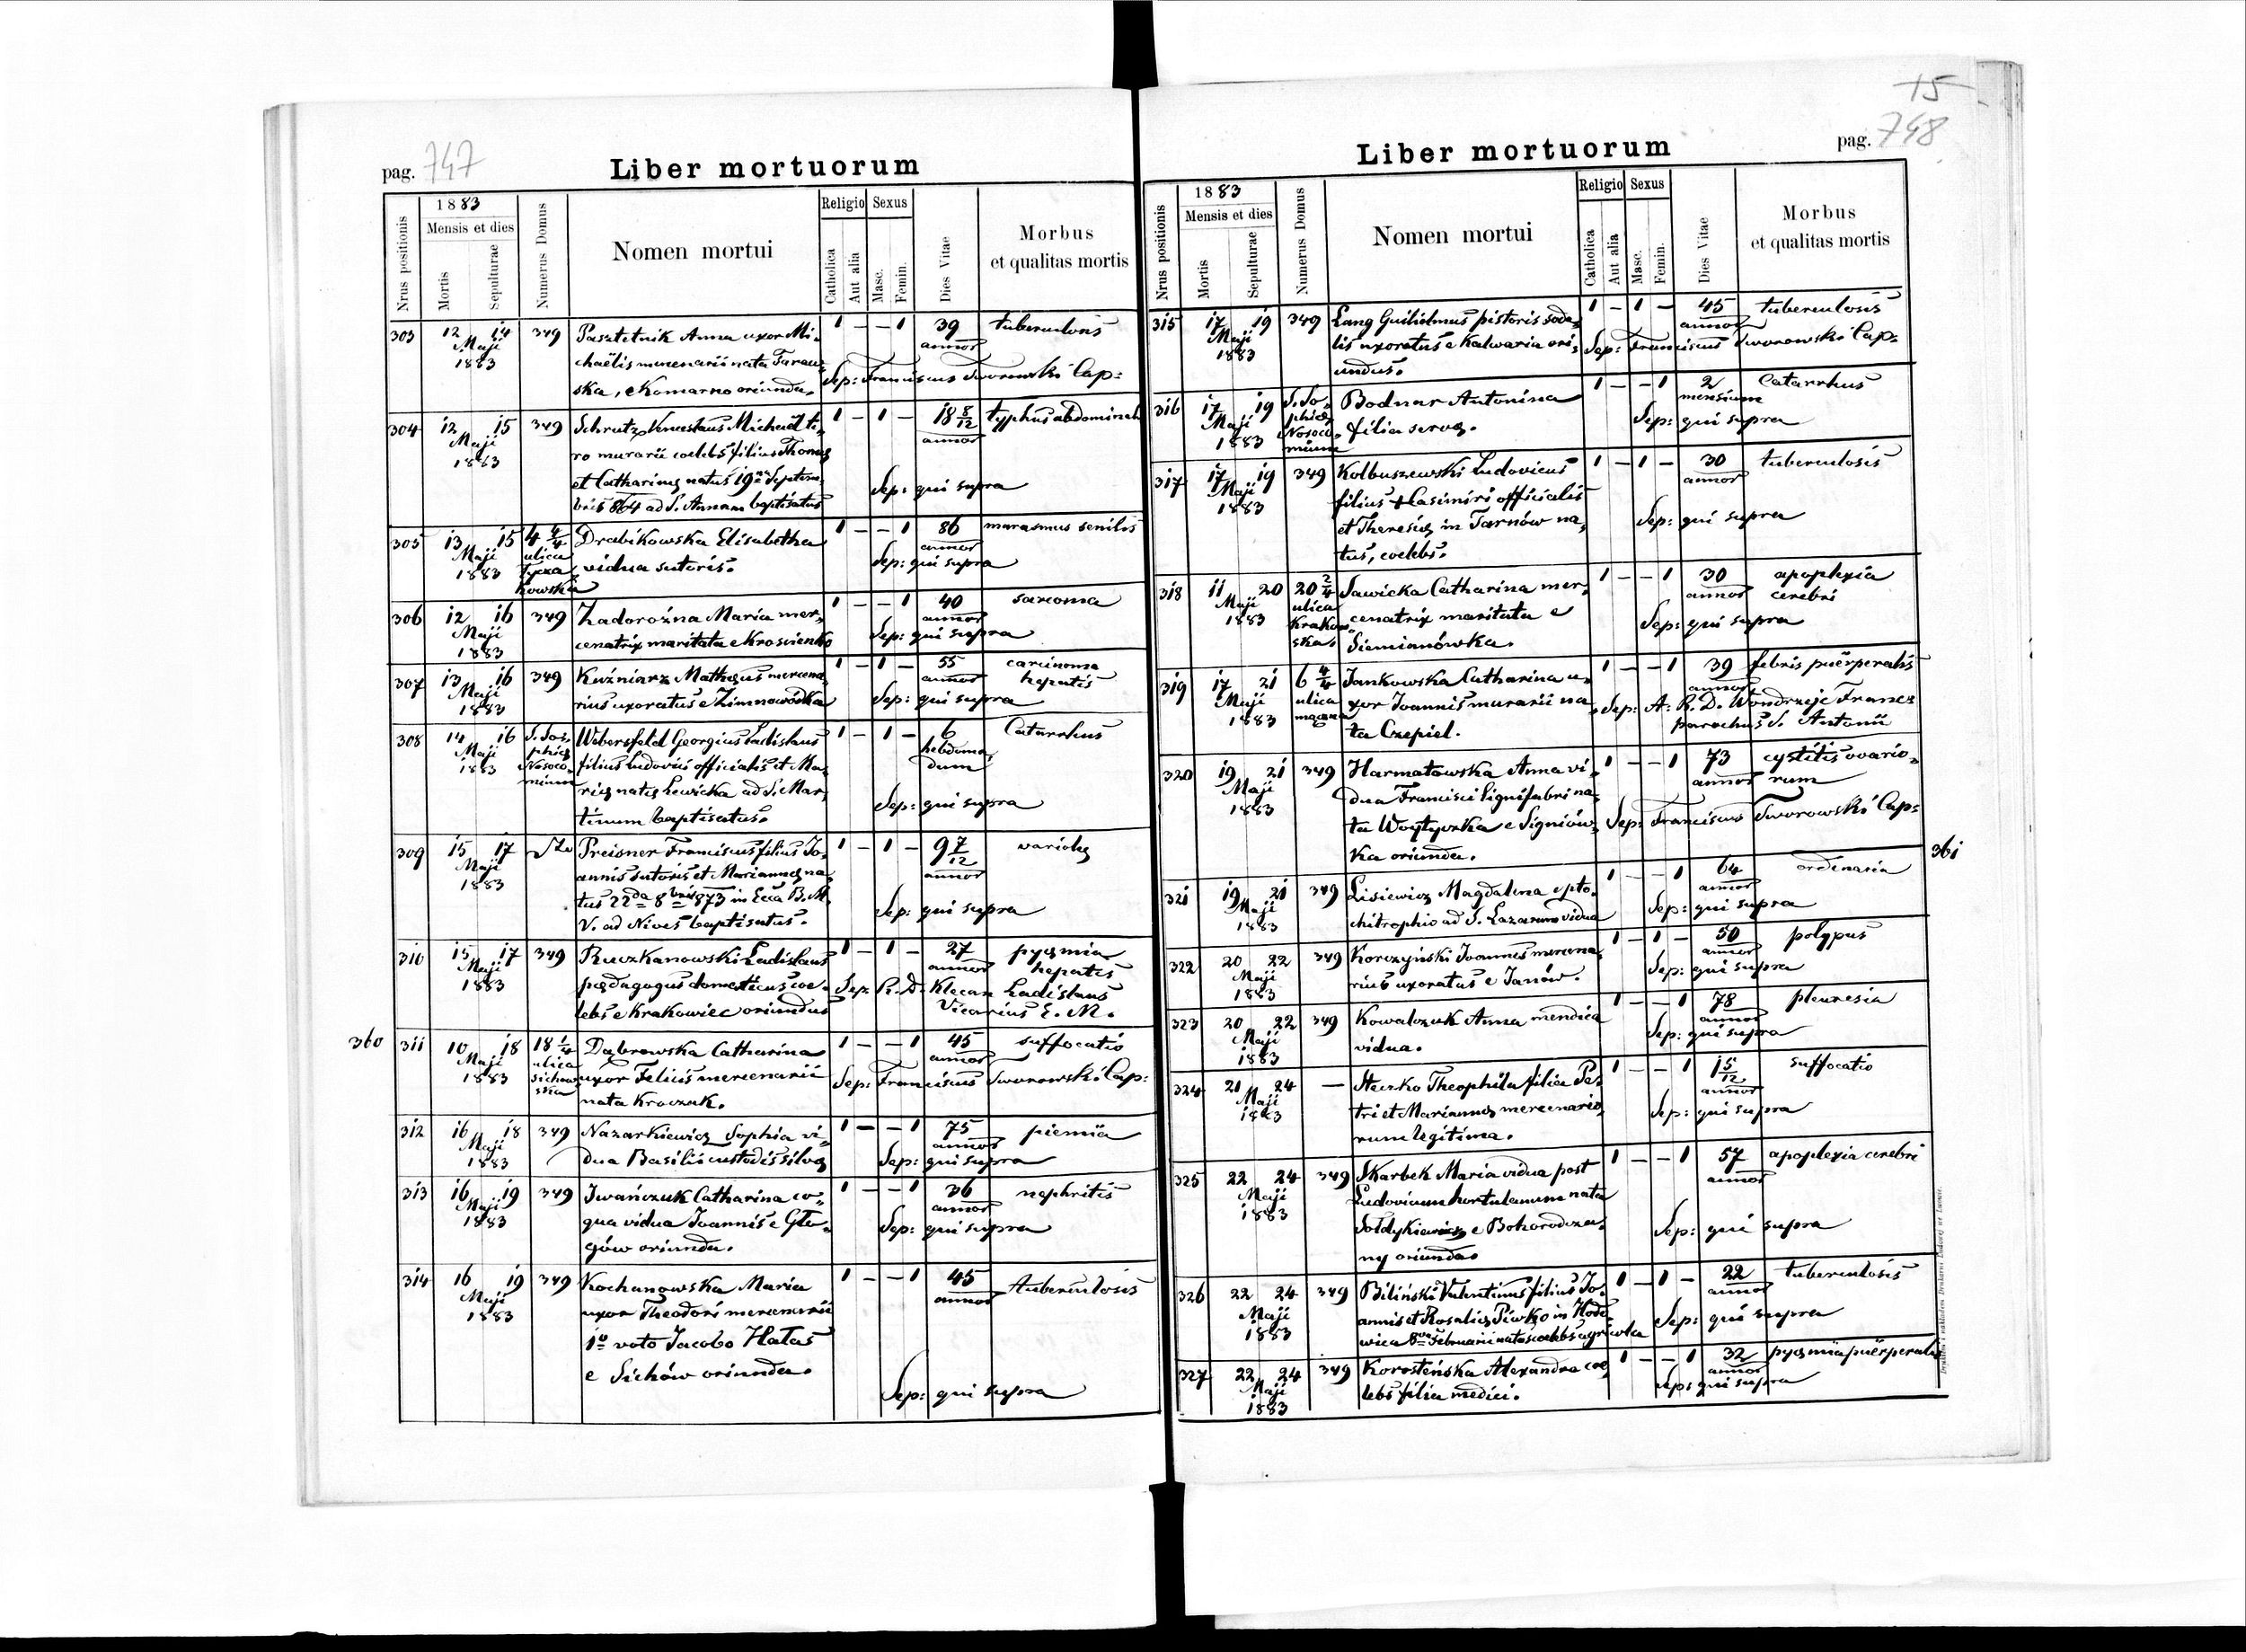 pag. 747
Liber mortuorum
Nrus positionis
1883
Mensis et dies
Mortis
Sepulturae
Numerus Domus
Nomen mortui
Religio
Catholica
Aut alia
Sexus
Masc.
Femin.
Dies Vitae
Morbus
et qualitas mortis
303 12 14 349 Pasztetnik Anna uxor Mi- 1 – – 1 39 tuberculosis
Maji chaëlis mercenarii nata Taraw- annor
1883 ska, e Komarno oriunda. Sep: Franciscus Tworowski Cap:
304 12 15 349 Schrutz Venceslaus Michaël ti- 1 – 1 – 18 8/12 typhus abdominalis
Maji ro murarii coelebs filius Thomæ annor
1883 et Catharinæ natus 19na Septem-
bris 864 ad S. Annam baptisatus Sep: qui supra
305 13 15 4 4/4 Drabikowska Elisabetha 1 – – 1 86 marasmus senilis
Maji ulica vidua sutoris. annor
1883 Łycza Sep: qui supra
kowska
306 12 16 349 Zadorożna Maria mer- 1 – – 1 40 sarcoma
Maji cenatrix maritata e Krościenko annor
1883 Sep: qui supra
307 13 16 349 Kuźniarz Mathæus mercena- 1 – 1 – 55 carcinoma
Maji rius uxoratus e Zimnowódka annor hepatis
1883 Sep: qui supra
308 14 16 S. So- Webersfeld Georgius Ladislaus 1 – 1 – 6 Catarrhus
Maji phiæ filius Ludovici officialis et Ma- hebdoma-
1883 Nosoco- riæ natæ Lewicka ad S. Mar- dum
mium tinum baptisatus. Sep: qui supra
309 15 17 Preisner Franciscus filius Jo- 1 – 1 – 9 7/12 variolæ
Maji annis sutoris et Mariannæ na- annor
1883 tus 22da 8bris 873 in Ecca B. M.
V. ad Nives baptisatus. Sep: qui supra
310 15 17 349 Ruczkanowski Ladislaus 1 – 1 – 27 pyæmia
Maji pædagogus domesticus coe- annor hepatis
1883 lebs e Krakowiec oriundus Sep: R. D. Klecan Ladislaus
Vicarius E. M.
360 311 10 18 18 1/4 Dąbrowska Catharina 1 – – 1 45 suffocatio
Maji ulica uxor Felicis mercenarii annor
1883 Sichow nata Kroczak. Sep: Franciscus Tworowski Cap:
ska
312 16 18 349 Nazarkiewicz Sophia vi- 1 – – 1 75 piemia
Maji dua Basilii custodis silvæ annor
1883 Sep: qui supra
313 16 19 349 Iwańczuk Catharina co- 1 – – 1 36 nephritis
Maji qua vidua Joannis e Gło- annor
1883 gów oriunda. Sep: qui supra
314 16 19 349 Kochanowska Maria 1 – – 1 45 tuberculosis
Maji uxor Theodori mercenarii annor
1883 1o voto Jacobo Hałas
e Sichów oriunda. Sep: qui supra
15
pag. 748
Liber mortuorum
Nrus positionis
1883
Mensis et dies
Mortis
Sepulturae
Numerus Domus
Nomen mortui
Religio
Catholica
Aut alia
Sexus
Masc.
Femin.
Dies Vitae
Morbus
et qualitas mortis
315 17 19 349 Lang Guilielmus pistoris soda- 1 – 1 – 45 tuberculosis
Maji lis uxoratus e Kalwaria ori- annor
1883 undus. Sep: Franciscus Tworowski Cap:
316 17 19 S. So- Bodnar Antonina 1 – – 1 2 Catarrhus
Maji phiæ filia servæ. mensium
1883 Nosoco- Sep: qui supra
mium
317 17 19 349 Kolbuszewski Ludovicus 1 – 1 – 30 tuberculosis
Maji filius + Casimiri officialis annor
1883 et Theresiæ in Tarnów na- Sep: qui supra
tus, coelebs.
318 11 20 20 2/4 Sawicka Catharina mer- 1 – – 1 30 apoplexia
Maji ulica cenatrix maritata e annor cerebri
1883 Krakow- Siemianówka. Sep: qui supra
ska
319 17 21 6 4/4 Jankowska Catharina u- 1 – – 1 39 febris puërperalis
Maji ulica xor Joannis murarii na- annor
1883 ta Czepiel. Sep: A: R. D. Wondrzeje Francz
parochus S. Antonii
320 19 21 349 Harmatowska Anna vi- 1 – – 1 73 cystitis ovario-
Maji dua Francisci lignifabri na- annor rum
1883 ta Woytyczka e Signiów- Sep: Franciscus Tworowski Cap:
ka oriunda.
321 19 21 349 Lisiewicz Magdalena e pto- 1 – – 1 64 ordinaria 361
Maji chitrophio ad S. Lazarum vidua annor
1883 Sep: qui supra
322 20 22 349 Korczyński Joannes mercena- 1 – 1 – 50 polypus
Maji rius uxoratus e Janów. annor
1883 Sep: qui supra
323 20 22 349 Kowalczuk Anna mendica 1 – – 1 78 pleuresia
Maji vidua. annor
1883 Sep: qui supra
324 21 24 — Sturko Theophila filia Pe- 1 – – 1 1 5/12 suffocatio
Maji tri et Mariannæ mercenario- annor
1883 rum legitima. Sep: qui supra
325 22 24 349 Skarbek Maria vidua post 1 – – 1 57 apoplexia cerebri
Maji Ludovicum hortulanum nata annor
1883 Sołdykiewicz e Bohorodcza- Sep: qui supra
ny oriunda
326 22 24 349 Biliński Valentinus filius Jo- 1 – 1 – 22 tuberculosis
Maji annis et Rosaliæ Piwko in Hodo- annor
1883 wica 8va Februarii natus coelebs agricola Sep: qui supra
327 22 24 349 Korosteńska Alexandra coe- 1 – – 1 32 pyæmia puërperalis
Maji lebs filia medici. annor
1883 Sep: qui supra